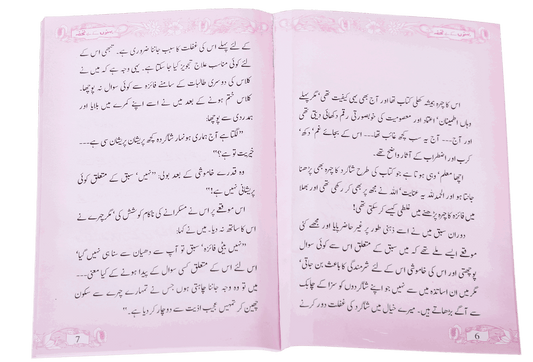 اس کا چہرہ ہمیشہ کھلی کتاب تھا اور آج بھی یہی کیفیت تھی مگر پہلے
وہاں اطمینان' اعتماد اور معصومیت کی خوبصورتی رقم دکھائی دیتی تھی
اور آج --- آج یہ سب کچھ غائب تھا --- اس کے بجائے غم' دکھ'
کرب اور اضطراب کے آثار واضح تھے۔
اچھا معلم' وہی ہوتا ہے جو کتاب کی طرح شاگرد کا چہرہ بھی پڑھنا
جانتا ہو اور الحمد للہ یہ عنایت' اللہ نے مجھ پر بھی کر رکھی تھی اور بھلا
میں فائزہ کا چہرہ پڑھنے میں غلطی کیسے کر سکتی تھی!
دوران سبق میں نے اسے ذہنی طور پر غیر حاضر پایا اور مجھے کئی
موقعے ایسے ملے تھے کہ میں سبق کے متعلق اس سے کوئی سوال
پوچھتی اور اس کی خاموشی اس کے لئے شرمندگی کا باعث بن جاتی'
مگر میں ان اساتذہ میں سے نہیں جو اپنے شاگردوں کو سزا کے چابک
سے آگے بڑھاتے ہیں۔ میرے خیال میں شاگرد کی غفلت دور کرنے
6
کے لئے پہلے اس کی غفلت کا سبب جاننا ضروری ہے۔ تبھی اس کے
لئے کوئی مناسب علاج تجویز کیا جا سکتا ہے۔ یہی وجہ ہے کہ میں نے
کلاس کی دوسری طالبات کے سامنے فائزہ سے کوئی سوال نہ پوچھا۔
کلاس ختم ہونے کے بعد میں نے اسے اپنے کمرے میں بلایا اور
ہمدردی سے پوچھا:
"لگتا ہے آج ہماری ہونہار شاگرد کچھ پریشان پریشان سی ہے ---
خیریت تو ہے؟"
وہ قدرے خاموشی کے بعد بولی: "نہیں' سبق کے متعلق کوئی
پریشانی نہیں ہے!"
اس موقعے پر اس نے مسکرانے کی ناکام کوشش کی' مگر چہرے نے
اس کا ساتھ نہ دیا۔ میں نے کہا:
"نہیں بیٹی فائزہ' سبق تو آپ نے دھیان سے سنا ہی نہیں گیا'
اس لئے اس کے متعلق کسی سوال کے پیدا ہونے کے کیا معنی ---
میں تو وہ وجہ جاننا چاہتی ہوں جس نے تمہارے چہرے سے سکون
چھین کر تمہیں عجیب اذیت سے دوچار کر دیا ہے۔"
7